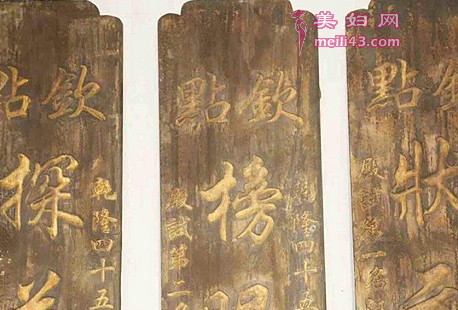 美妇网
meili43.com
欽點
狀
殿試第一名
欽點
乾隆四十五
榜
殿試第二名
欽點
乾隆四十五
探